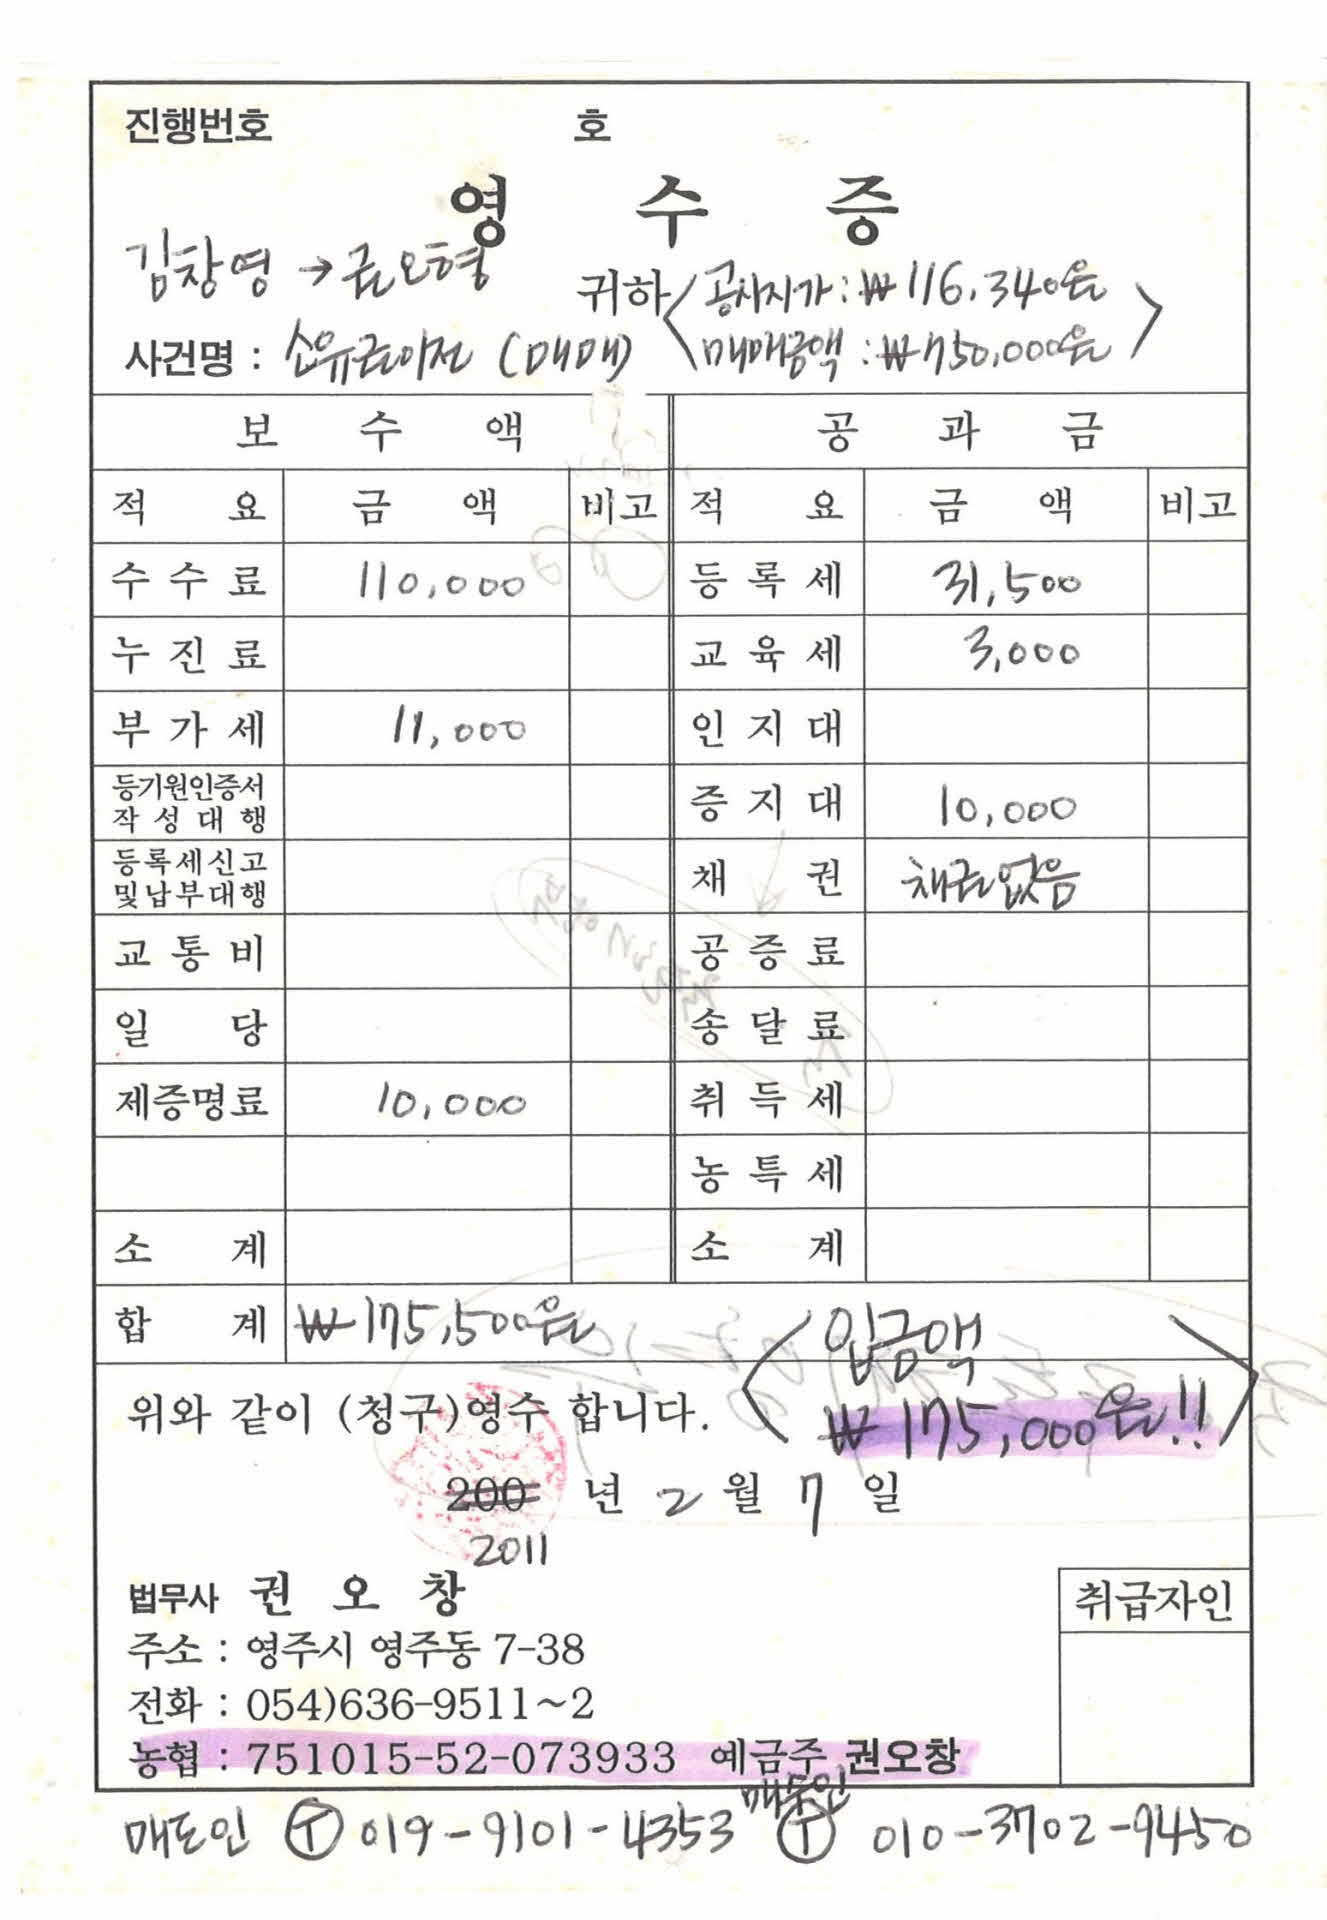 진행번호 호
영 수 증
김창영 → 금오형 귀하
〈공시지가 : ₩116,340원
매매금액 : ₩750,000원〉
사건명 : 소유권이전 (매매)
보 수 액 공 과 금
적 요 금 액 비고 적 요 금 액 비고
수수료 110,000 등록세 31,500
누진료 교육세 3,000
부가세 11,000 인지대
등기원인증서 작성대행 증지대 10,000
등록세신고 및납부대행 채 권 채권없음
교통비 공증료
일 당 송달료
제증명료 10,000 취득세
농특세
소 계 소 계
합 계 ₩175,500원
〈입금액
₩175,000원!!〉
위와 같이 (청구)영수 합니다.
200 년 2 월 7 일
2011
법무사 권 오 창
취급자인
주소 : 영주시 영주동 7-38
전화 : 054)636-9511~2
농협 : 751015-52-073933 예금주 권오창
매도인 Ⓣ 019-9101-4353 매수인 Ⓣ 010-3702-9450